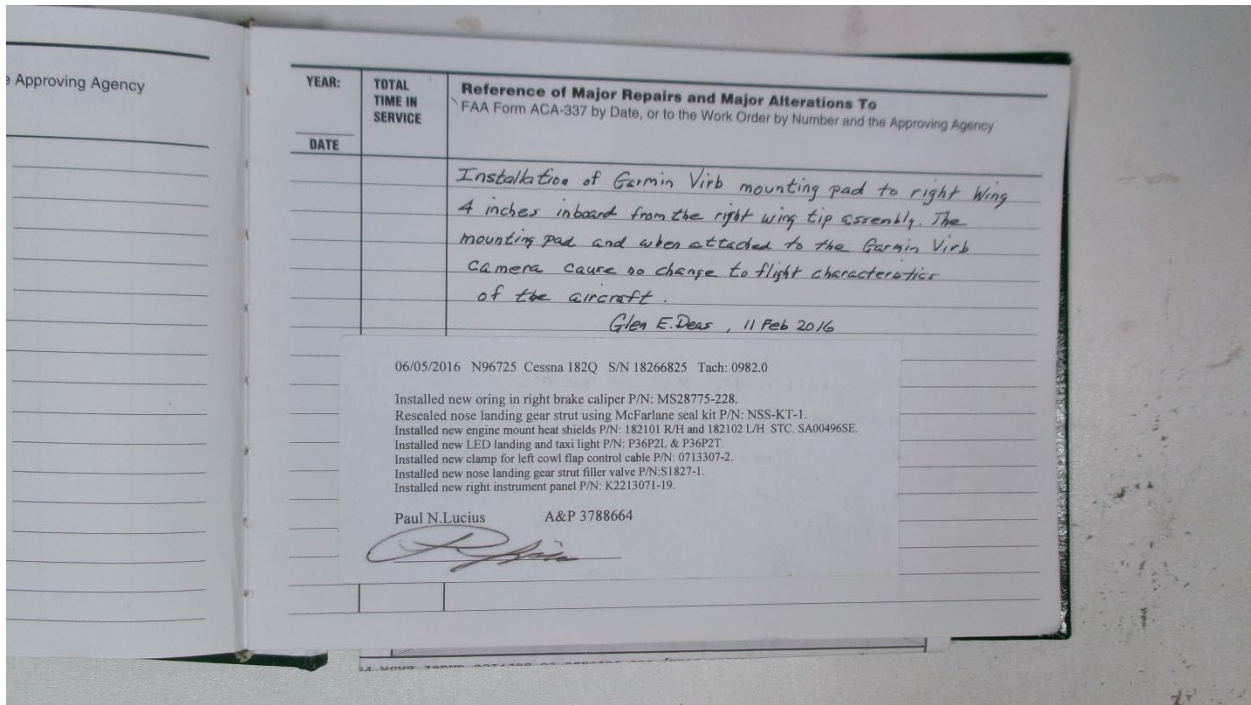 e Approving Agency
YEAR:
DATE
TOTAL
TIME IN
SERVICE
Reference of Major Repairs and Major Alterations To
FAA Form ACA-337 by Date, or to the Work Order by Number and the Approving Agency
Installation of Garmin Virb mounting pad to right Wing
4 inches inboard from the right wing tip assembly. The
mounting pad and when attached to the Garmin Virb
Camera cause no change to flight characteristics
of the aircraft.
Glen E. Deas, 11 Feb 2016
06/05/2016 N96725 Cessna 182Q S/N 18266825 Tach: 0982.0
Installed new oring in right brake caliper P/N: MS28775-228.
Resealed nose landing gear strut using McFarlane seal kit P/N: NSS-KT-1.
Installed new engine mount heat shields P/N: 182101 R/H and 182102 L/H STC. SA00496SE.
Installed new LED landing and taxi light P/N: P36P2L & P36P2T.
Installed new clamp for left cowl flap control cable P/N: 0713307-2.
Installed new nose landing gear strut filler valve P/N:S1827-1.
Installed new right instrument panel P/N: K2213071-19.
Paul N.Lucius A&P 3788664